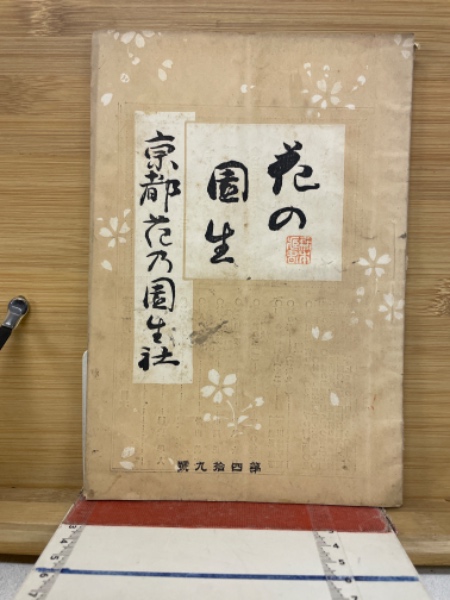 花の
園生
京都花乃園生社
第四拾九號